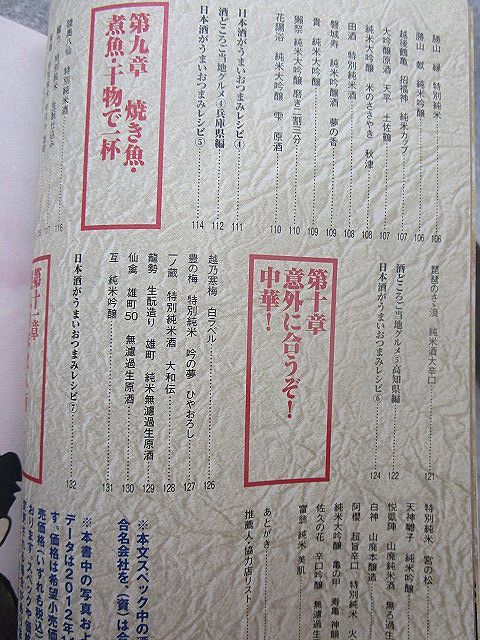 勝山 縁 特別純米……106
勝山 献 純米吟醸……106
越後鶴亀 招福神 純米カップ……107
大吟醸原酒 天平 土佐鶴……107
純米大吟醸 米のささやき 秋津……108
田酒 特別純米酒……108
磐城寿 純米吟醸酒 夢の香……109
貴 純米大吟醸……109
獺祭 純米大吟醸 磨き二割三分……110
花陽浴 純米大吟醸 雫 原酒……110
日本酒がうまいおつまみレシピ④……111
酒どころご当地グルメ④兵庫県編……112
日本酒がうまいおつまみレシピ⑤……114
第九章 焼き魚・
煮魚・干物で一杯
陸奥八仙 特別純米酒……116
琵琶のささ浪 純米酒大辛口……121
酒どころご当地グルメ⑤高知県編……122
日本酒がうまいおつまみレシピ⑥……124
第十章
意外に合うぞ!
中華!
越乃寒梅 白ラベル……126
豊の梅 特別純米 吟の夢 ひやおろし……127
一ノ蔵 特別純米酒 大和伝……128
龍勢 生酛造り 雄町 純米無濾過生原酒……129
仙禽 雄町50 無濾過生原酒……130
互 純米吟醸……131
日本酒がうまいおつまみレシピ⑦……132
第十一章
特別純米 宮の松
天神囃子 純米吟醸
悦凱陣 山廃純米酒 無ろ過生
白神 山廃本醸造
阿櫻 超旨辛口 特別純米 火
純米大吟醸 亀の甲 寿亀 神韻
佐久の花 辛口吟醸 無濾過生
富翁 純米 美肌
あとがき
推薦人・協力店リスト
※本文スペック中の酒
合名会社を、(資)は合
※本書中の写真およ
データは2012年1
す。価格は希望小売価
売価格(いずれも税込)
おります。スペックや価格